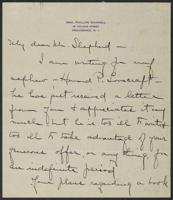 My dear Mr. Shepherd —
I am writing for my
nephew — Howard P. Lovecraft —
he has just received a letter
from you & appreciates it very
much but he is too ill to write
too ill to take advantage of your
generous offer or anything for
an indefinite period
Your plans regarding a book